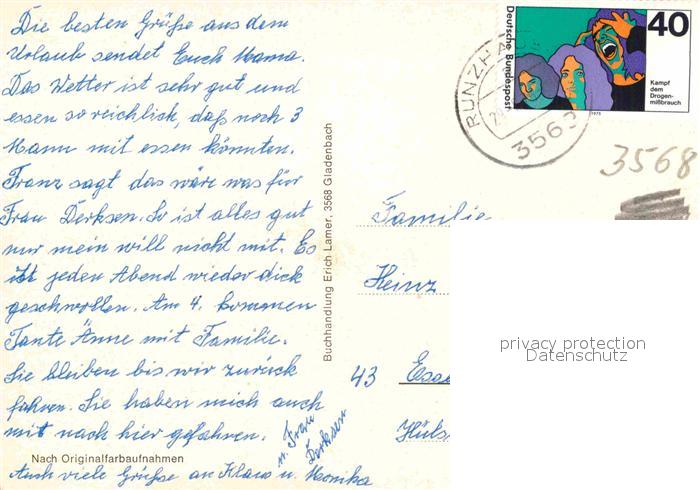 Die besten Grüße aus dem
Urlaub sendet Euch Mama.
Das Wetter ist sehr gut und
essen so reichlich, daß noch 3
Mann mit essen könnten.
Franz sagt das wäre was für
Frau Derksen. So ist alles gut
nur mein will nicht mit. Es
ist jeden Abend wieder dick
geschwollen. Am 4. kommen
Tante Änne mit Familie.
Sie bleiben bis wir zurück
fahren. Sie haben mich auch
mit nach hier gefahren.
u. Frau
Derksen
Nach Originalfarbaufnahmen
Auch viele Grüße an Klaus u. Monika
Buchhandlung Erich Lamer, 3568 Gladenbach
Deutsche Bundespost
40
Kampf
dem
Drogen-
mißbrauch
1975
RUNZHA
3563
3568
Familie
Heinz
43 Esse
Hüls
privacy protection
Datenschutz